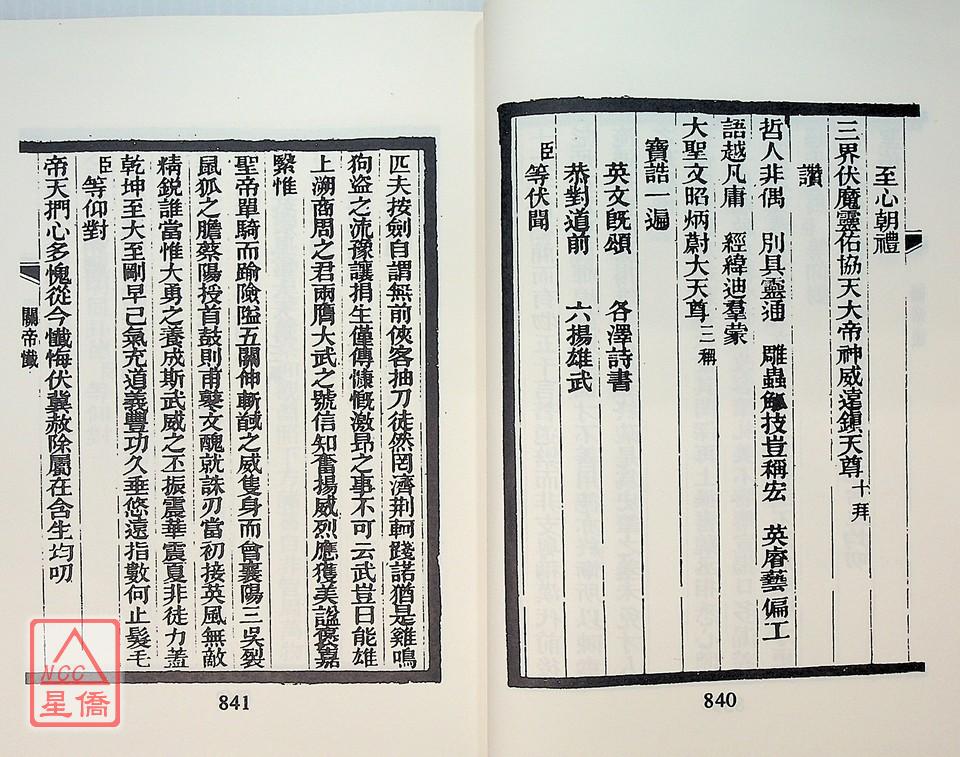 至心朝禮
三界伏魔靈佑協天大帝神威遠鎮天尊十拜
讚
哲人非偶　別具靈通　雕蟲觕技豈稱宏　英睿藝偏工
語越凡庸　經緯迪羣蒙
大聖文昭炳蔚大天尊三稱
寶誥一遍
英文旣頌　各澤詩書
恭對道前　六揚雄武
臣等伏聞
840
匹夫按劍自謂無前俠客抽刀徒然罔濟荆軻踐諾猶是雞鳴
狗盗之流豫讓捐生僅傳慷慨激昂之事不可云武豈曰能雄
上溯商周之君兩膺大武之號信知奮揚威烈應獲美諡褒嘉
繄惟
聖帝單騎而踰險隘五關伸斬馘之威隻身而會襄陽三吳裂
鼠狐之膽蔡陽授首鼓則甫孽文醜就誅刃當初接英風無敵
精銳誰當惟大勇之養成斯武威之丕振震華震夏非徒力蓋
乾坤至大至剛早已氣充道義豐功久垂悠遠指數何止髮毛
臣等仰對
帝天捫心多愧從今懺悔伏冀赦除屬在含生均叨
關帝懺
841
NCC
星僑